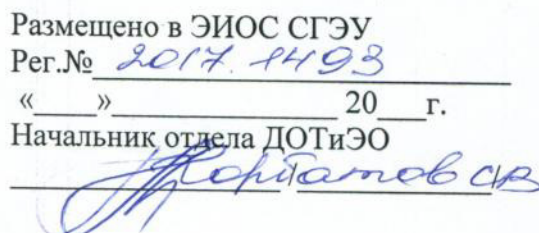 Размещено в ЭИОС СГЭУ
Рег.№ 2017.1493
«____»____________________20___г.
Начальник отдела ДОТиЭО